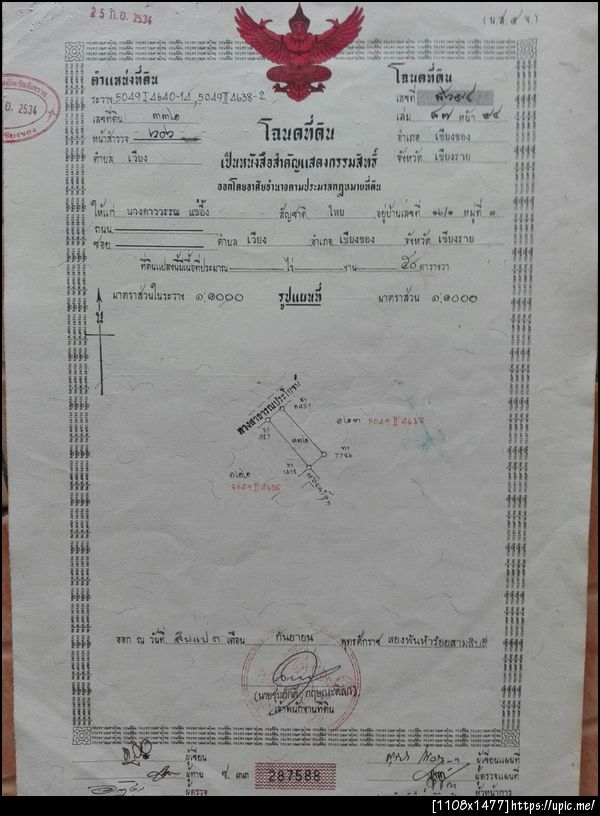 25 ก.ย. 2534
(น.ส.๔ จ.)
ตำแหน่งที่ดิน
โฉนดที่ดิน
ระวาง 5049 I 4640-14, 5049 II 4638-2
เลขที่
เลขที่ดิน ๓๓๒
เล่ม ๓๗ หน้า ๕๔
หน้าสำรวจ ๒๐๖
อำเภอ เชียงของ
ตำบล เวียง
จังหวัด เชียงราย
ย. 2534
โฉนดที่ดิน
เป็นหนังสือสำคัญแสดงกรรมสิทธิ์
ออกโดยอาศัยอำนาจตามประมวลกฎหมายที่ดิน
ให้แก่ นางดาววรรณ แซ่อึ้ง สัญชาติ ไทย อยู่บ้านเลขที่ ๑๖/๑ หมู่ที่ ๓
ถนน
ซอย ตำบล เวียง อำเภอ เชียงของ จังหวัด เชียงราย
ที่ดินแปลงนี้มีเนื้อที่ประมาณ ไร่ งาน ๕๐ ตารางวา
มาตราส่วนในระวาง ๑:๑๐๐๐ รูปแผนที่ มาตราส่วน ๑:๑๐๐๐
น
ทางสาธารณประโยชน์
๓๓๒
๑๒๓ 5049 II 4638
๑๒๒
5049 II 4638
ออก ณ วันที่ สิบแปด เดือน กันยายน พุทธศักราช สองพันห้าร้อยสามสิบสี่
เจ้าพนักงานที่ดิน
ผู้เขียน
ผู้ทาน
ผู้ตรวจ
ช. ๓๓ 287588
ผู้เขียนแผนที่
ผู้ตรวจแผนที่
หัวหน้าการ
[1108x1477]https://upic.me/